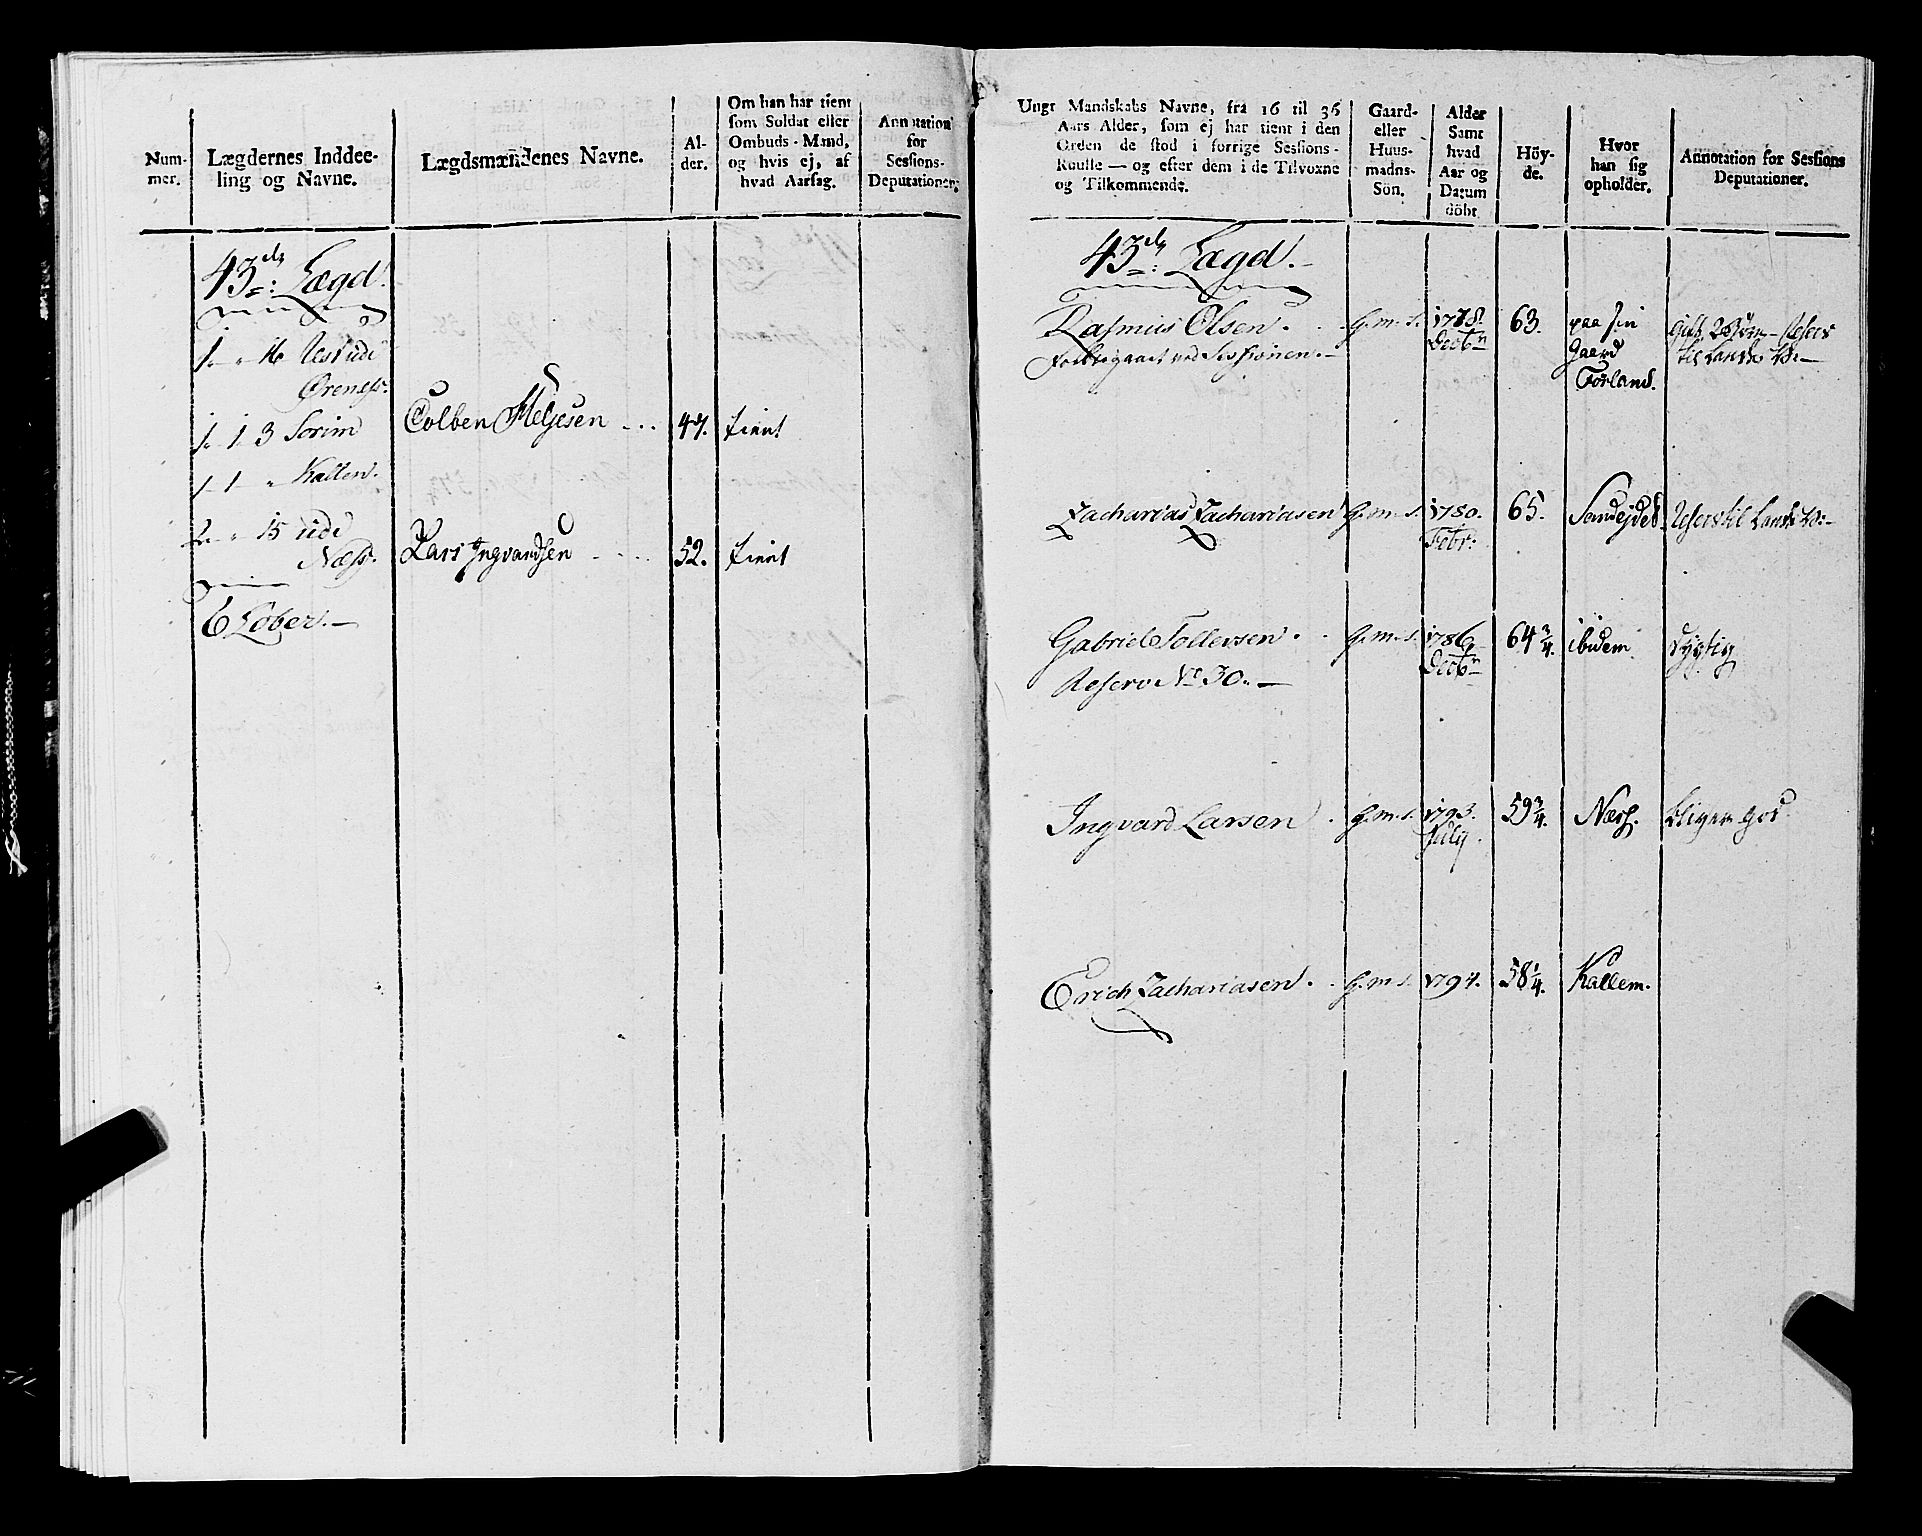 Num-
mer.
Lægdernes Inddee-
ling og Navne.
Lægdsmændenes Navne.
Al-
der.
Om han har tient
som Soldat eller
Ombuds-Mand,
og hvis ej, af
hvad Aarsag.
Annotation
for
Sessions-
Deputationen.
43de: Lægd.
1 " 16 Rest udi
Øreness.
1. 1. 3 Sorim
Colben Helgesen 47. tient
1 1 " Kallen.
2. " 15 udi
Næss.
Lars Ingvardsen 52. tient
6 Løber.
Ungt Mandskabs Navne, fra 16 til 36
Aars Alder, som ej har tient i den
Orden de stod i forrige Sessions-
Roulle — og efter dem i de Tilvoxne
og Tilkommende.
Gaard-
eller
Huus-
madns-
Sön.
Alder
Samt
hvad
Aar og
Datum
döbt.
Höy-
de.
Hvor
han sig
opholder.
Annotation for Sessions
Deputationer.
43de: Lægd.
Rasmus Olsen. G. m. S. 1778. Decbr 63. paa sin
Gaard
Førland.
gift Börn Reserv
til Landv.
ved Sessionen.
Zacharias Zachariasen G. m. S. 1780. 65. Sandejdet Reserv til Landv.
Febr:
Gabriel Tollevsen G. m. S. 1786. 64 3/4. ibidem dygtig
Decbr
Reserv No 30.
Ingvard Larsen G. m. S. 1793. 59 3/4. Næss. bliver god
July
Erich Zachariasen G. m. S. 1794. 58 1/4. Kallem.